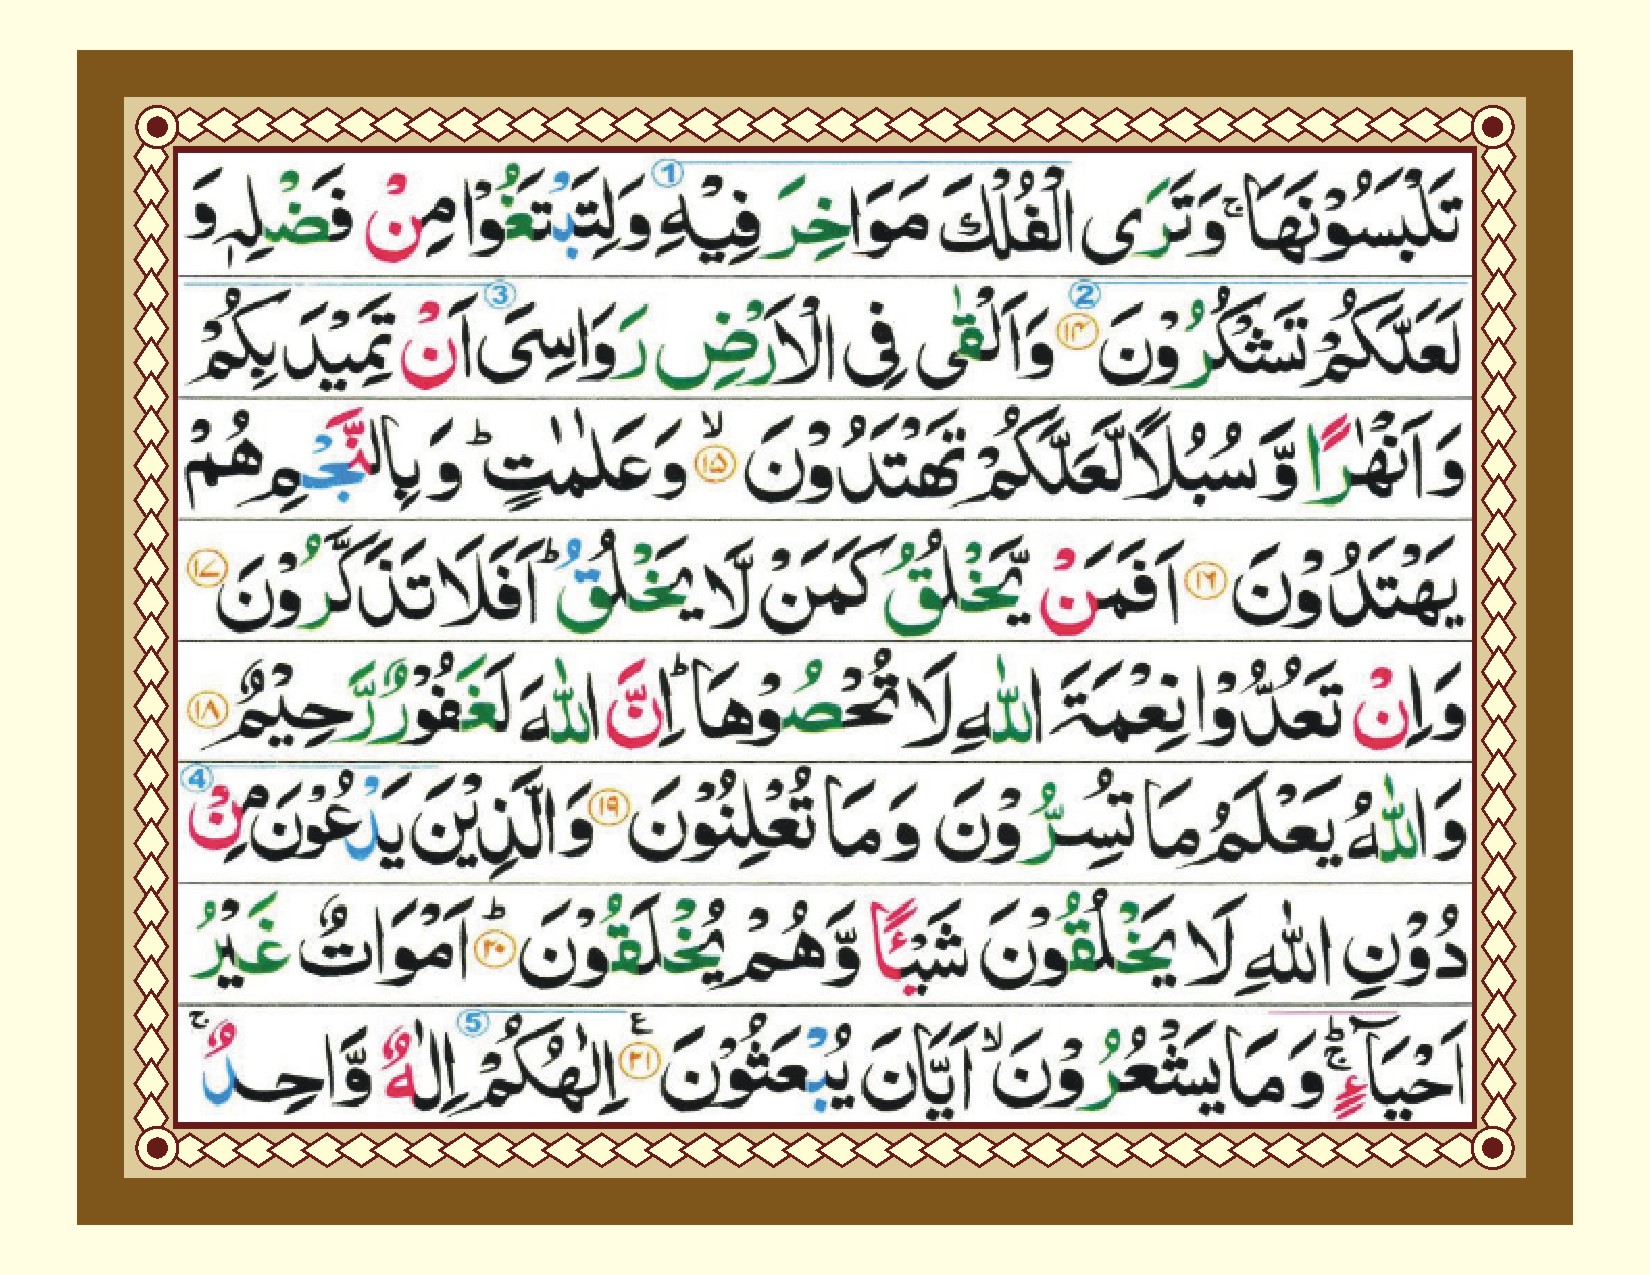 تَلْبَسُوْنَهَا ۚ وَتَرَى الْفُلْكَ مَوَاخِرَ فِيْهِ ① وَلِتَبْتَغُوْا مِنْ فَضْلِهٖ وَ
لَعَلَّكُمْ تَشْكُرُوْنَ ② ۱۴ وَاَلْقٰى فِى الْاَرْضِ رَوَاسِىَ ③ اَنْ تَمِيْدَ بِكُمْ
وَاَنْهٰرًا وَّ سُبُلًا لَّعَلَّكُمْ تَهْتَدُوْنَ ۙ ۱۵ وَعَلٰمٰتٍ ؕ وَبِالنَّجْمِ هُمْ
يَهْتَدُوْنَ ۱۶ اَفَمَنْ يَّخْلُقُ كَمَنْ لَّا يَخْلُقُ ؕ اَفَلَا تَذَكَّرُوْنَ ۱۷
وَاِنْ تَعُدُّوْا نِعْمَةَ اللّٰهِ لَا تُحْصُوْهَا ؕ اِنَّ اللّٰهَ لَغَفُوْرٌ رَّحِيْمٌ ۱۸
وَاللّٰهُ يَعْلَمُ مَا تُسِرُّوْنَ وَمَا تُعْلِنُوْنَ ۱۹ وَالَّذِيْنَ يَدْعُوْنَ مِنْ ④
دُوْنِ اللّٰهِ لَا يَخْلُقُوْنَ شَيْـًٔا وَّهُمْ يُخْلَقُوْنَ ؕ ۲۰ اَمْوَاتٌ غَيْرُ
اَحْيَآءٍ ۚ وَمَا يَشْعُرُوْنَ ۙ اَيَّانَ يُبْعَثُوْنَ ۲۱ ع اِلٰهُكُمْ ⑤ اِلٰهٌ وَّاحِدٌ ۚ